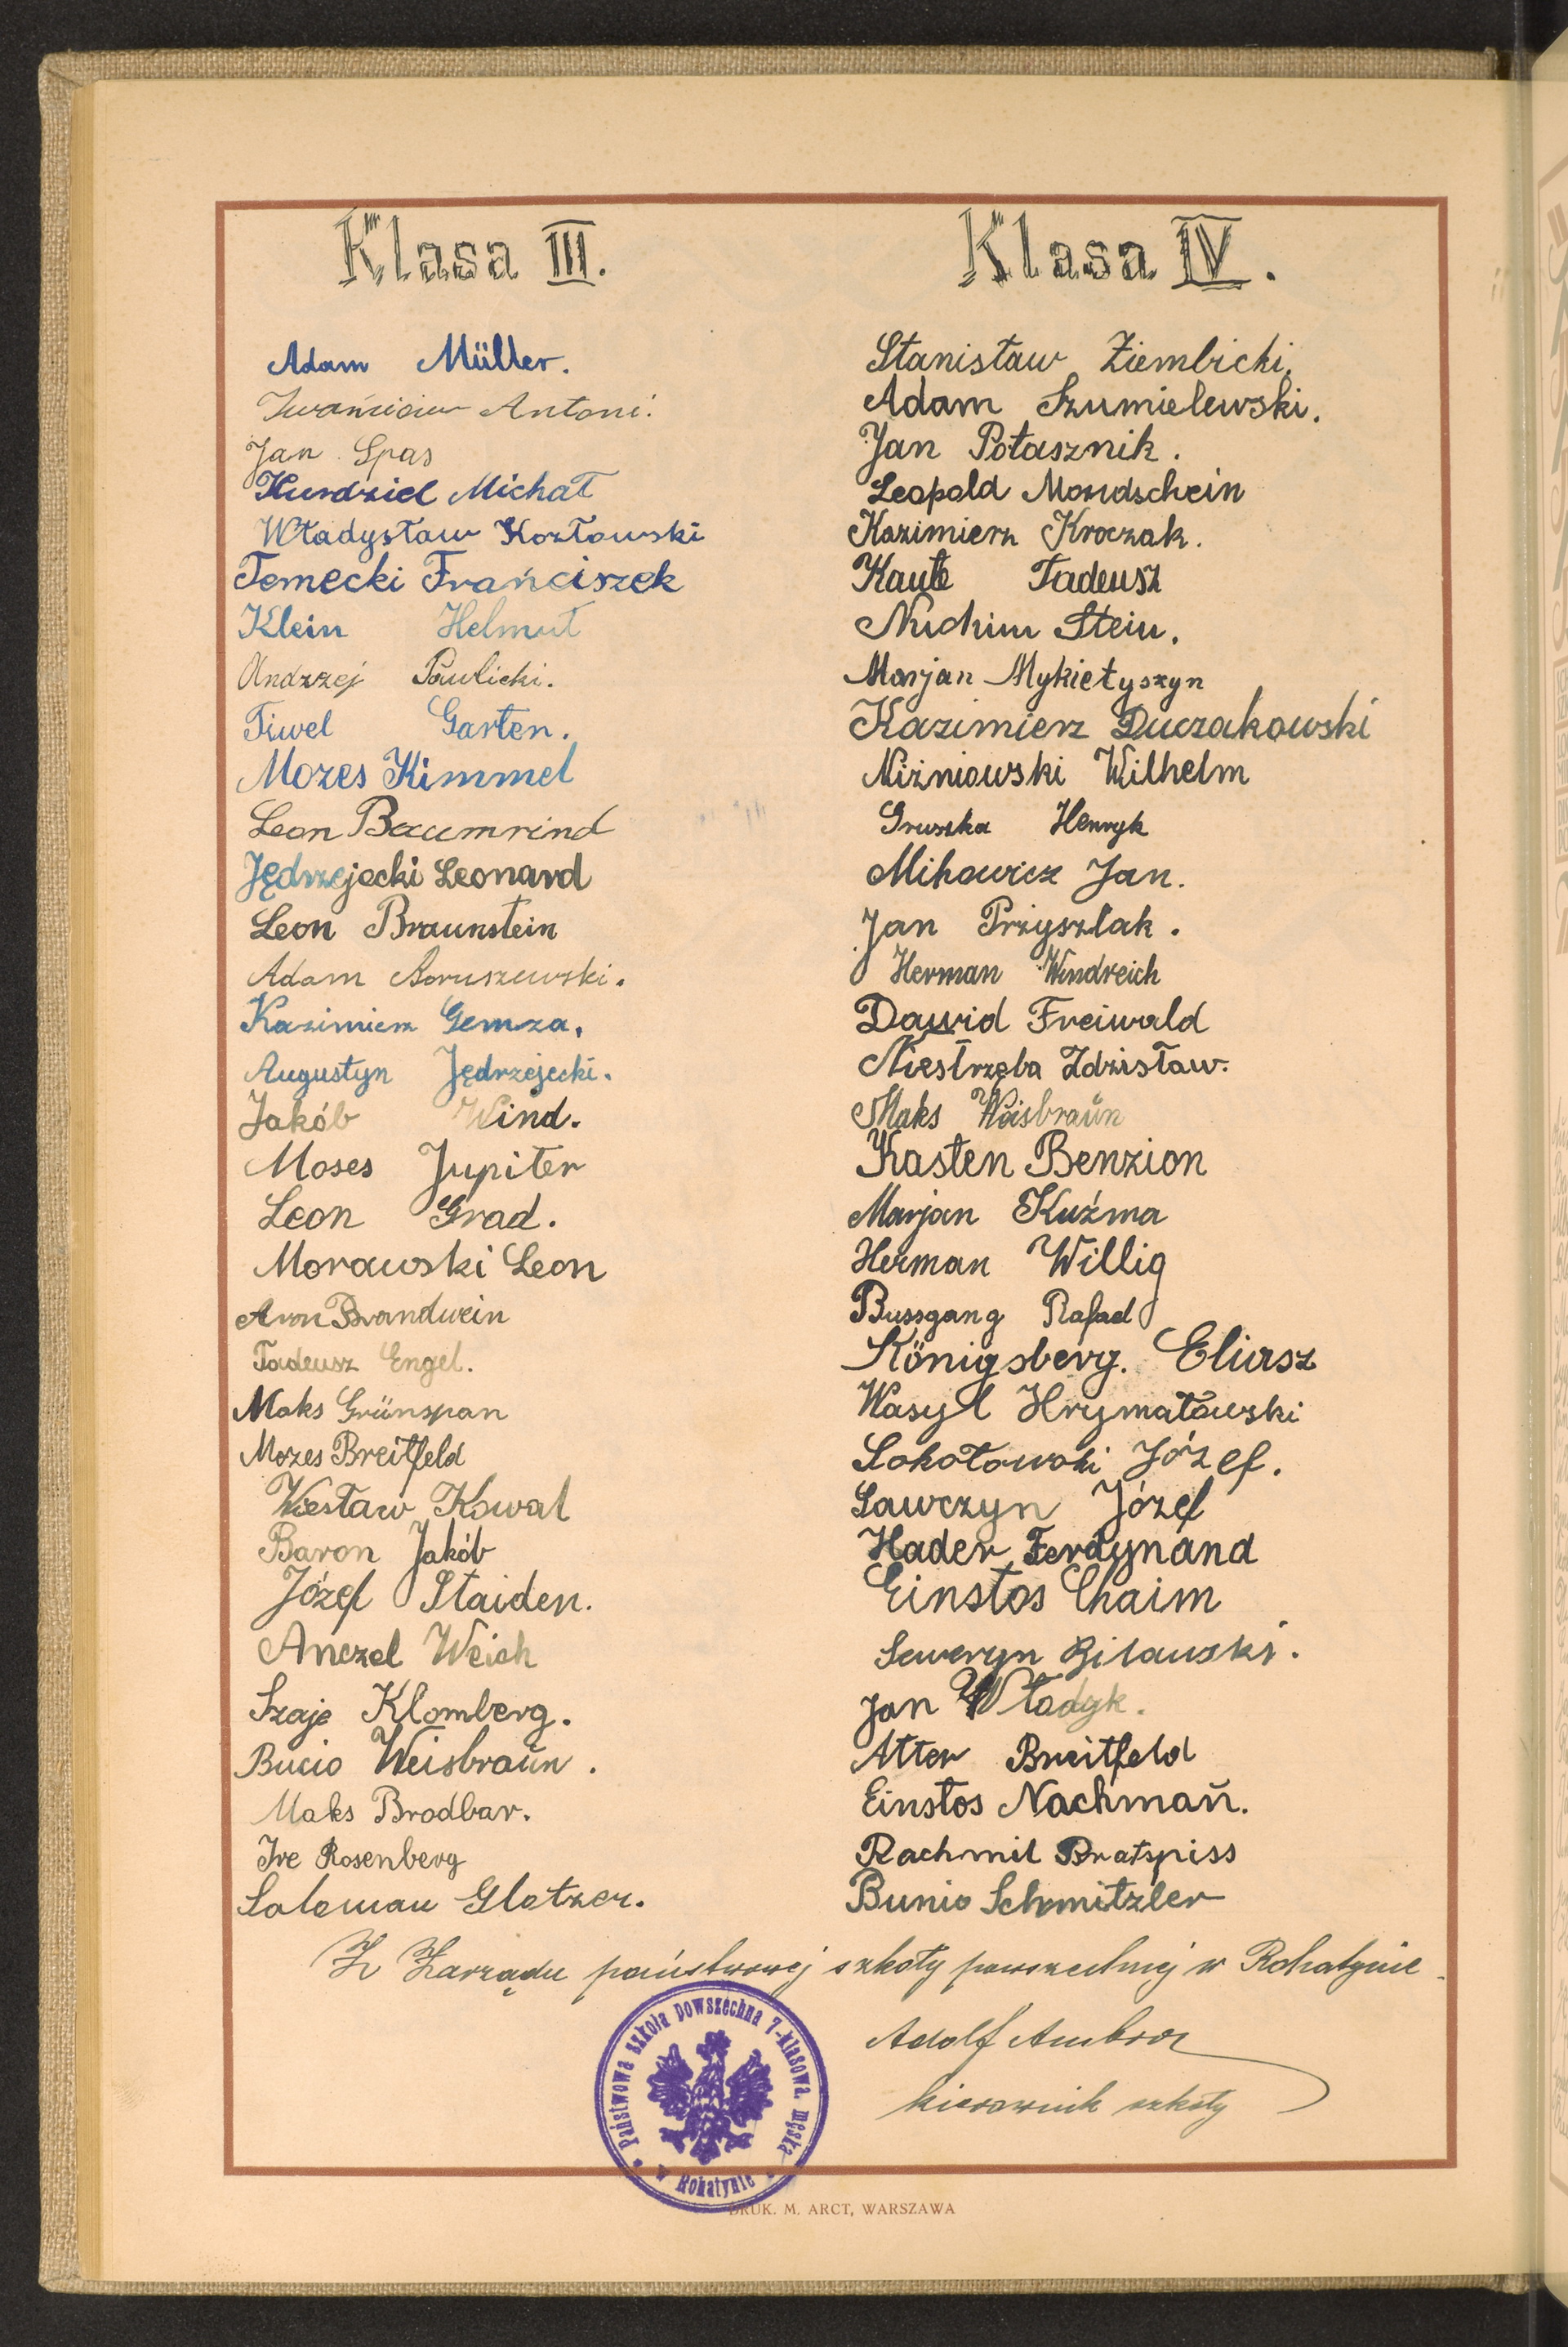 Klasa III.
Adam Müller.
Iwańciów Antoni.
Jan Spas
Kurdziel Michał
Władysław Kozłowski
Temecki Frańciszek
Klein Helmut
Andrzej Pawlicki.
Fiwel Garten.
Mozes Kimmel
Leon Baumrind
Jędrzejecki Leonard
Leon Braunstein
Adam Boruszewski.
Kazimierz Gemza.
Augustyn Jędrzejecki.
Jakób Wind.
Moses Jupiter
Leon Grad.
Morawski Leon
Aron Brandwein
Tadeusz Engel.
Maks Grünspan
Mozes Breitfeld
Wiesław Kowal
Baron Jakób
Józef Staiden.
Anczel Weich
Szaje Klomberg.
Bucio Weisbraŭn.
Maks Brodbar.
Ire Rosenberg
Saloman Glotzer.
Klasa IV.
Stanisław Ziembicki.
Adam Szumielewski.
Jan Potasznik.
Leopold Mondschein
Kazimierz Kroczak.
Kaute Tadeusz
Nuchim Stein.
Marjan Mykietyszyn
Kazimierz Duczakowski
Niżniowski Wilhelm
Gruszka Henryk
Mihowicz Jan.
Jan Przyszlak.
Herman Windreich
Dawid Freiwald
Niestrzęba Zdzisław.
Maks Weisbraŭn
Kasten Benzion
Marjan Kuźma
Herman Willig
Bussgang Rafael
Königsberg. Eliasz
Wasyl Hrymałowski
Sokołowski Józef.
Sawczyn Józef
Hader Ferdynand
Einstos Chaim
Seweryn Bilawski.
Jan Władyk.
Alter Breitfeld
Einstos Nachmaň.
Rachmil Bratspiss
Bunio Schmitzler
Z Zarządu państwowej szkoły powszechnej w Rohatynie
Adolf Ambroz
kierownik szkoły
Państwowa szkoła powszechna 7-klasowa męska w Rohatynie
DRUK. M. ARCT, WARSZAWA